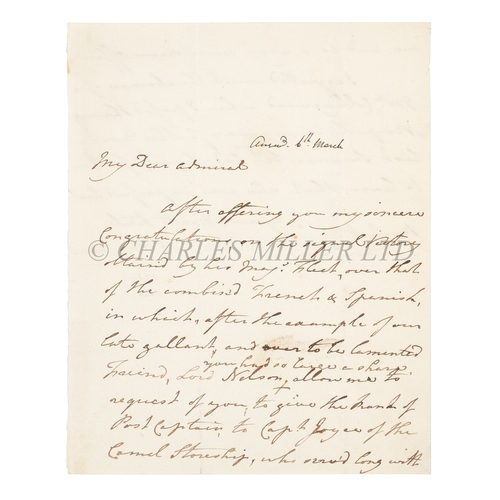 Answd. 6th March
My Dear Admiral
After offering you my sincere
Congratulations on the signal Victory
attained by his Majs. Fleet, over that
of the combined French & Spanish,
in which, after the example of our
late gallant, and ever to be lamented
Friend, Lord Nelson, you had so large a share, allow me to
request of you, to give the rank of
Post Captain, to Capt Joyce of the
Camel Storeship, who serv'd long with
© CHARLES MILLER LTD